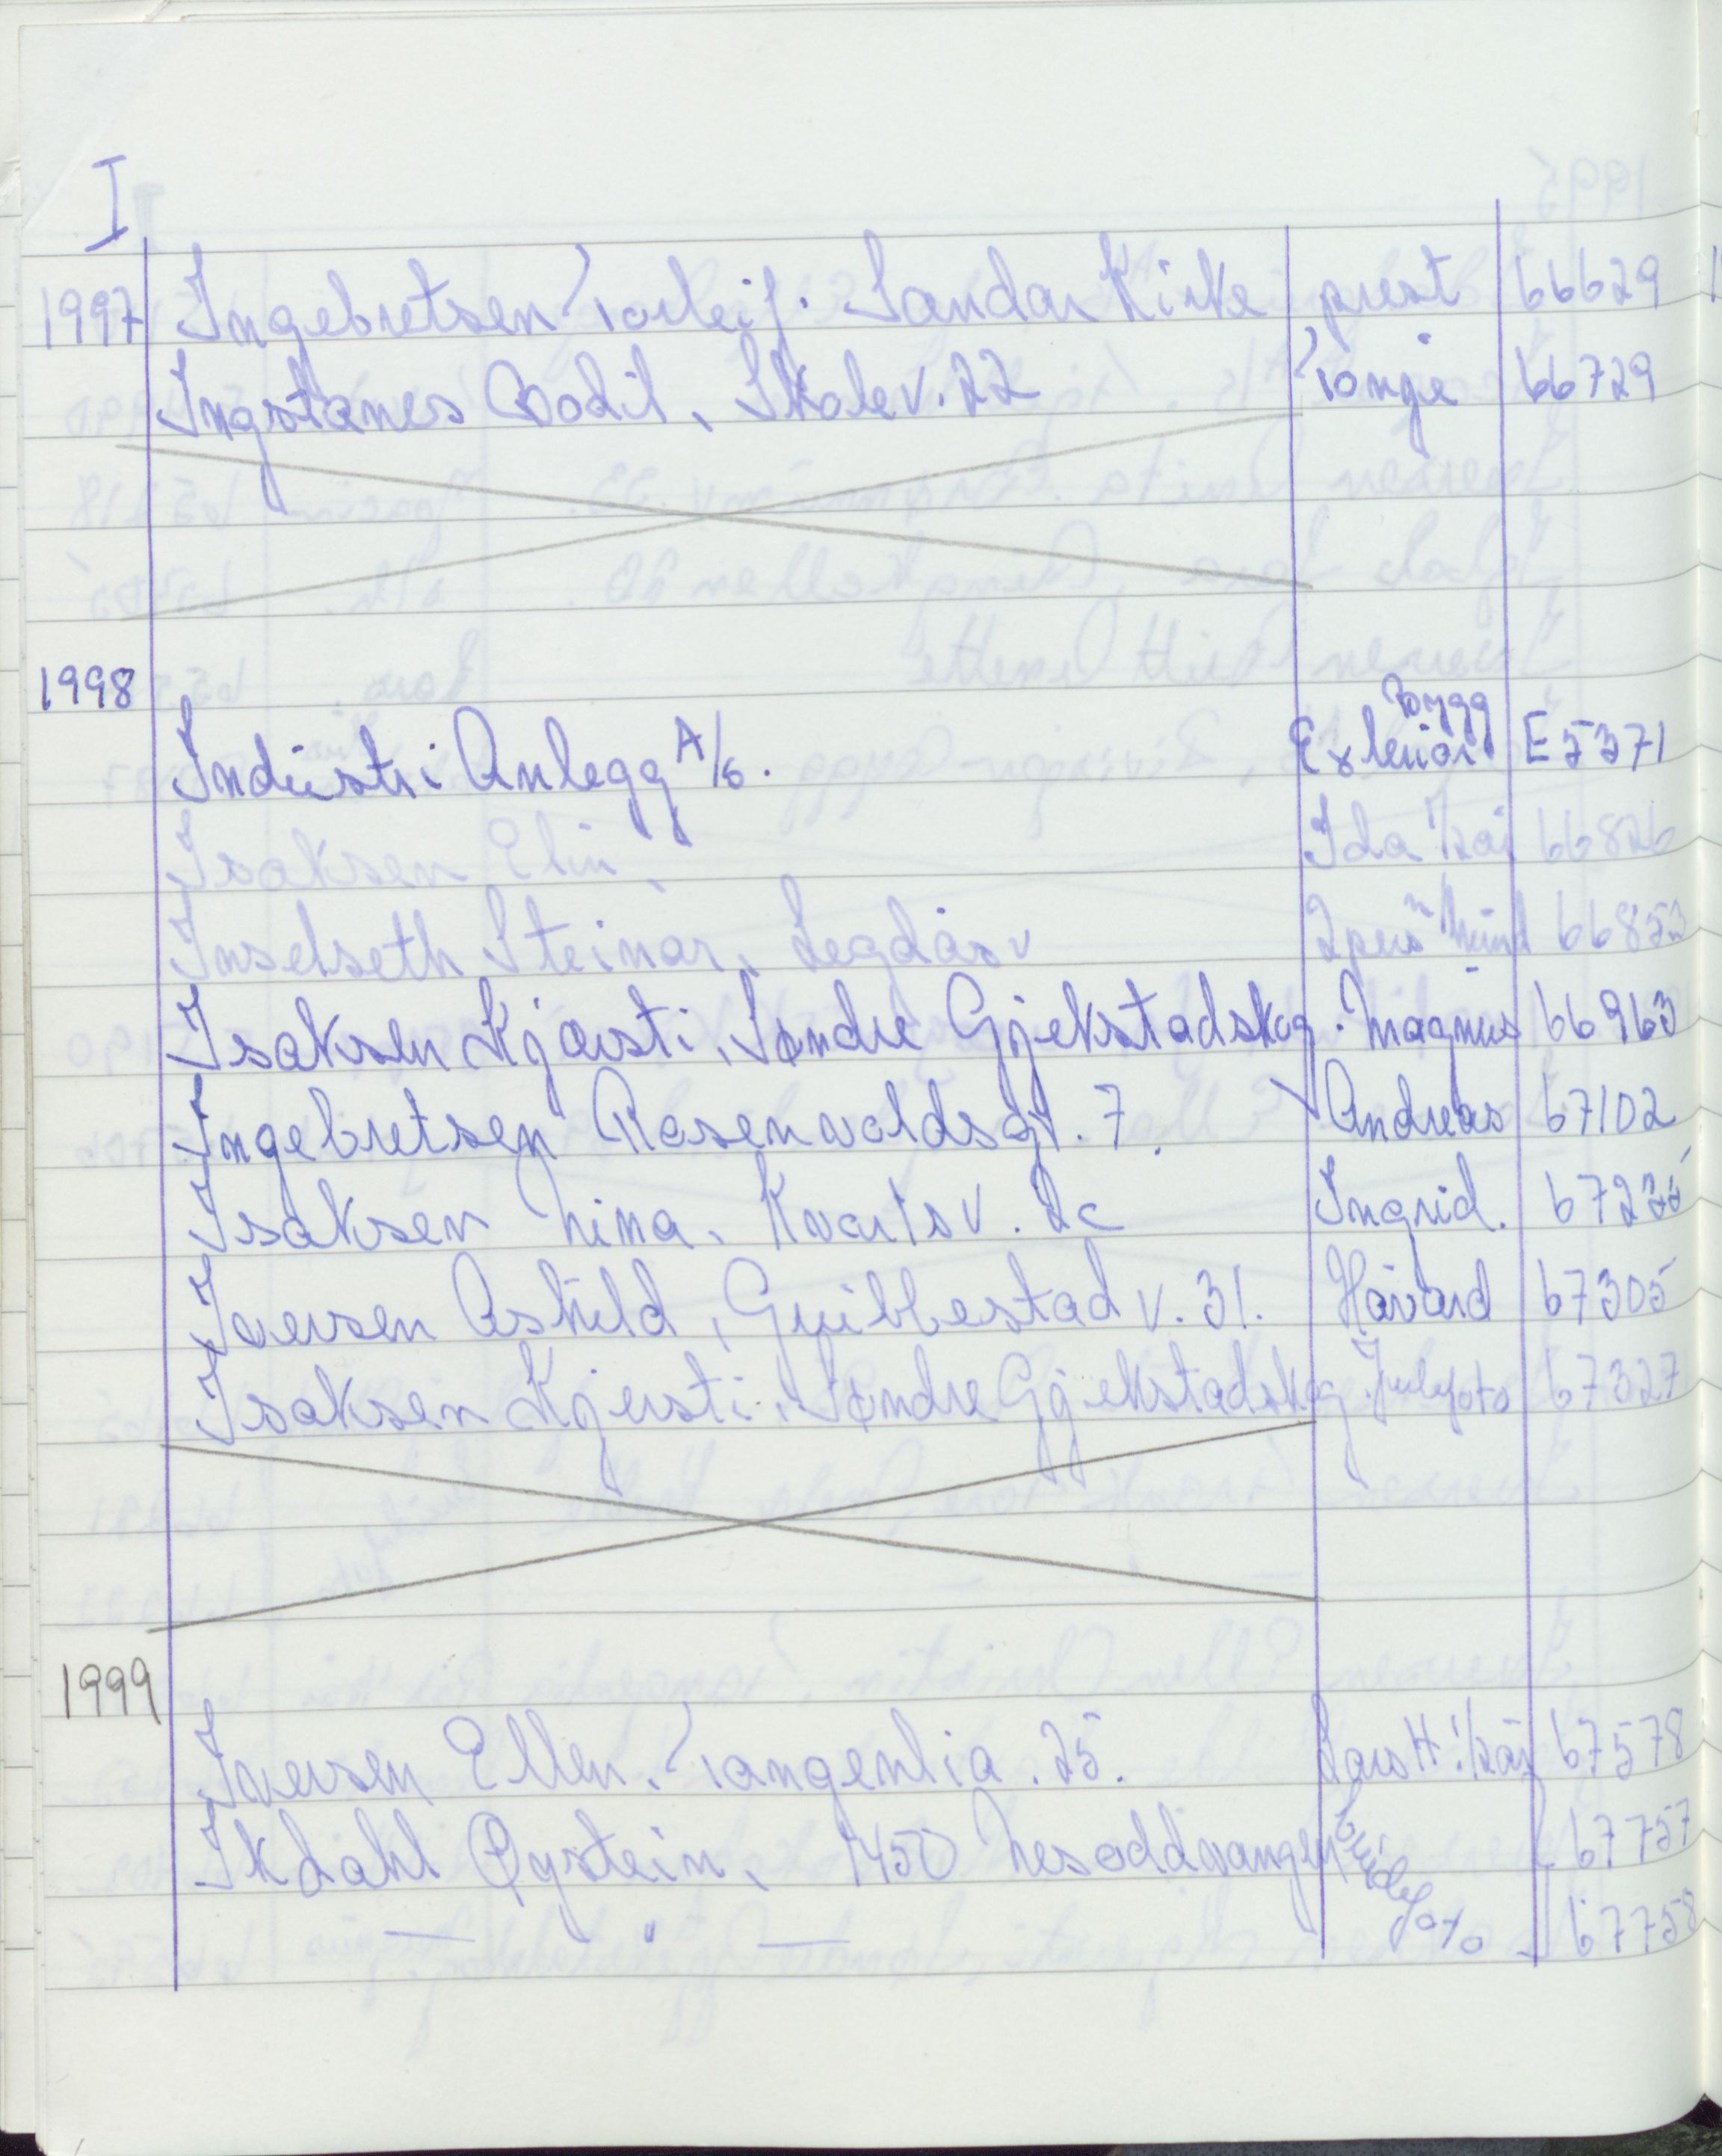 I
1997 Ingebretsen Torleif. Sandar Kirke prest 66629
Ingstanes Bodil, Skolev. 22 Tonje 66729
1998
Industri Anlegg A/S. Exteriør Bygg E5371
Isaksen Elin, Ida 1/2 år 66826
Inselseth Steinar, Legdåsv 2 pers 66853
Isaksen Kjærsti, Søndre Gjekstadskog. Magnus 66963
Ingebretsen Rosenvoldsgt. 7. Andreas 67102
Isaksen Nina, Kvartsv. 2c Ingrid. 67235
Iversen Askild, Grillestadv. 31. Håvard 67305
Isaksen Kjersti, Søndre Gjekstadskog. Julefoto 67327
1999
Iversen Ellen. Tangenlia. 25. Lars H 1/2 år 67578
Ikdahl Øystein, 1450 Nesoddtangen brudefoto 67757
— " — 67758